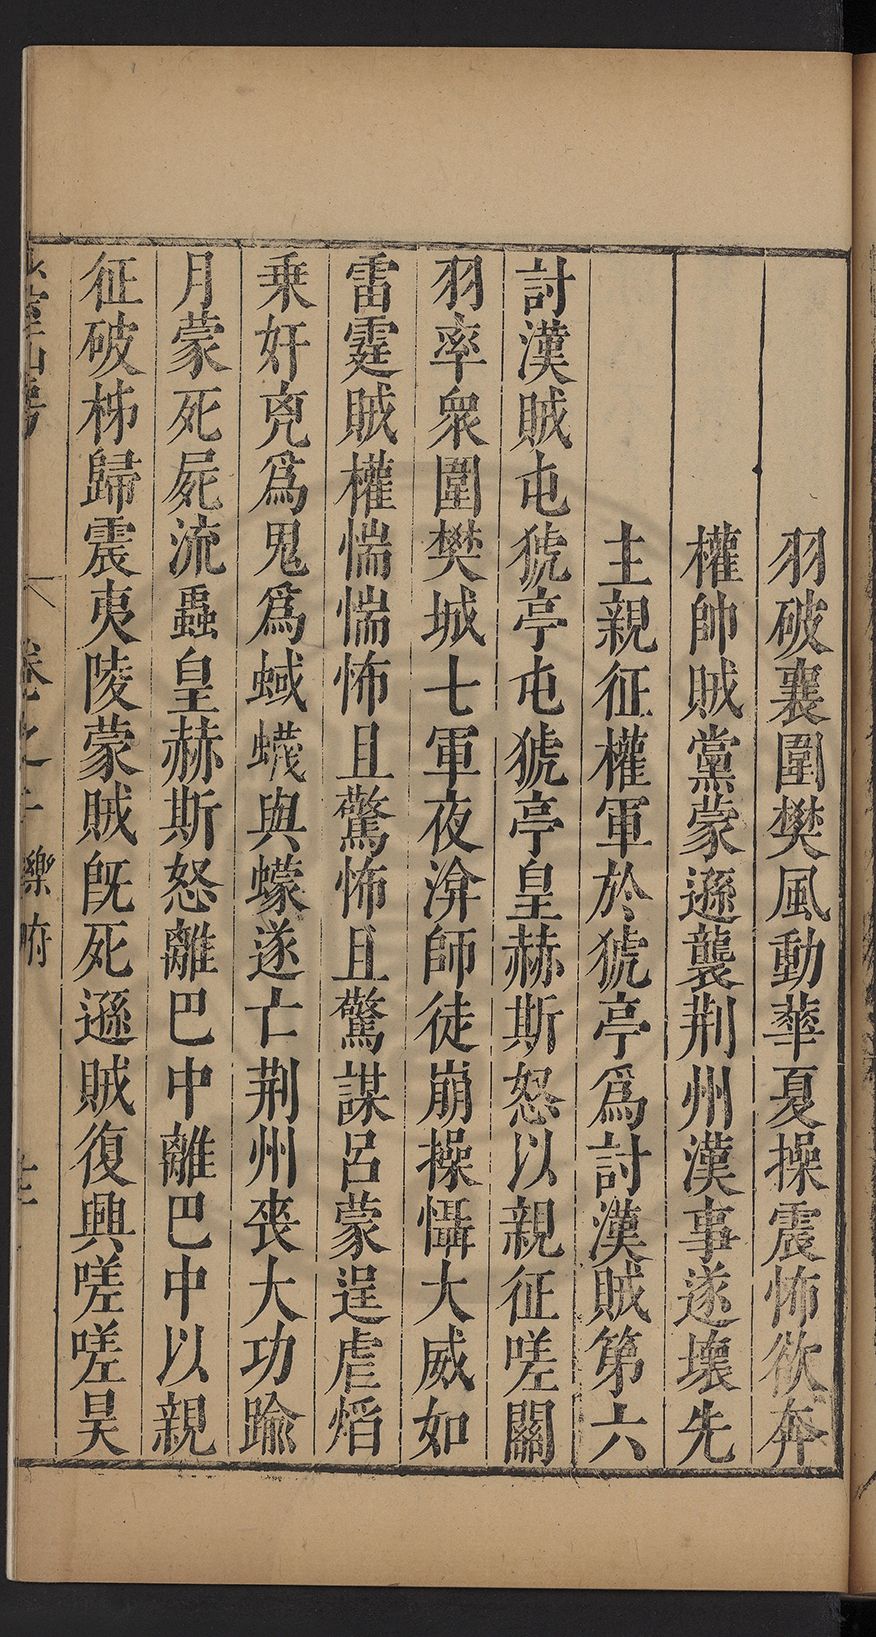 羽破襄圍樊風動華夏操震怖欲奔
權帥賊黨蒙遜襲荆州漢事遂壞先
主親征權軍於猇亭爲討漢賊第六
討漢賊屯猇亭屯猇亭皇赫斯怒以親征嗟關
羽率衆圍樊城七軍夜渰師徒崩操懾大威如
雷霆賊權惴惴怖且驚怖且驚謀呂蒙逞虐熖
乗奸兇爲鬼爲蜮蠛與蠓遂亡荆州喪大功踰
月蒙死屍流蟲皇赫斯怒離巴中離巴中以親
征破柹歸震夷陵蒙賊旣死遜賊復興嗟嗟昊
卷之 樂府